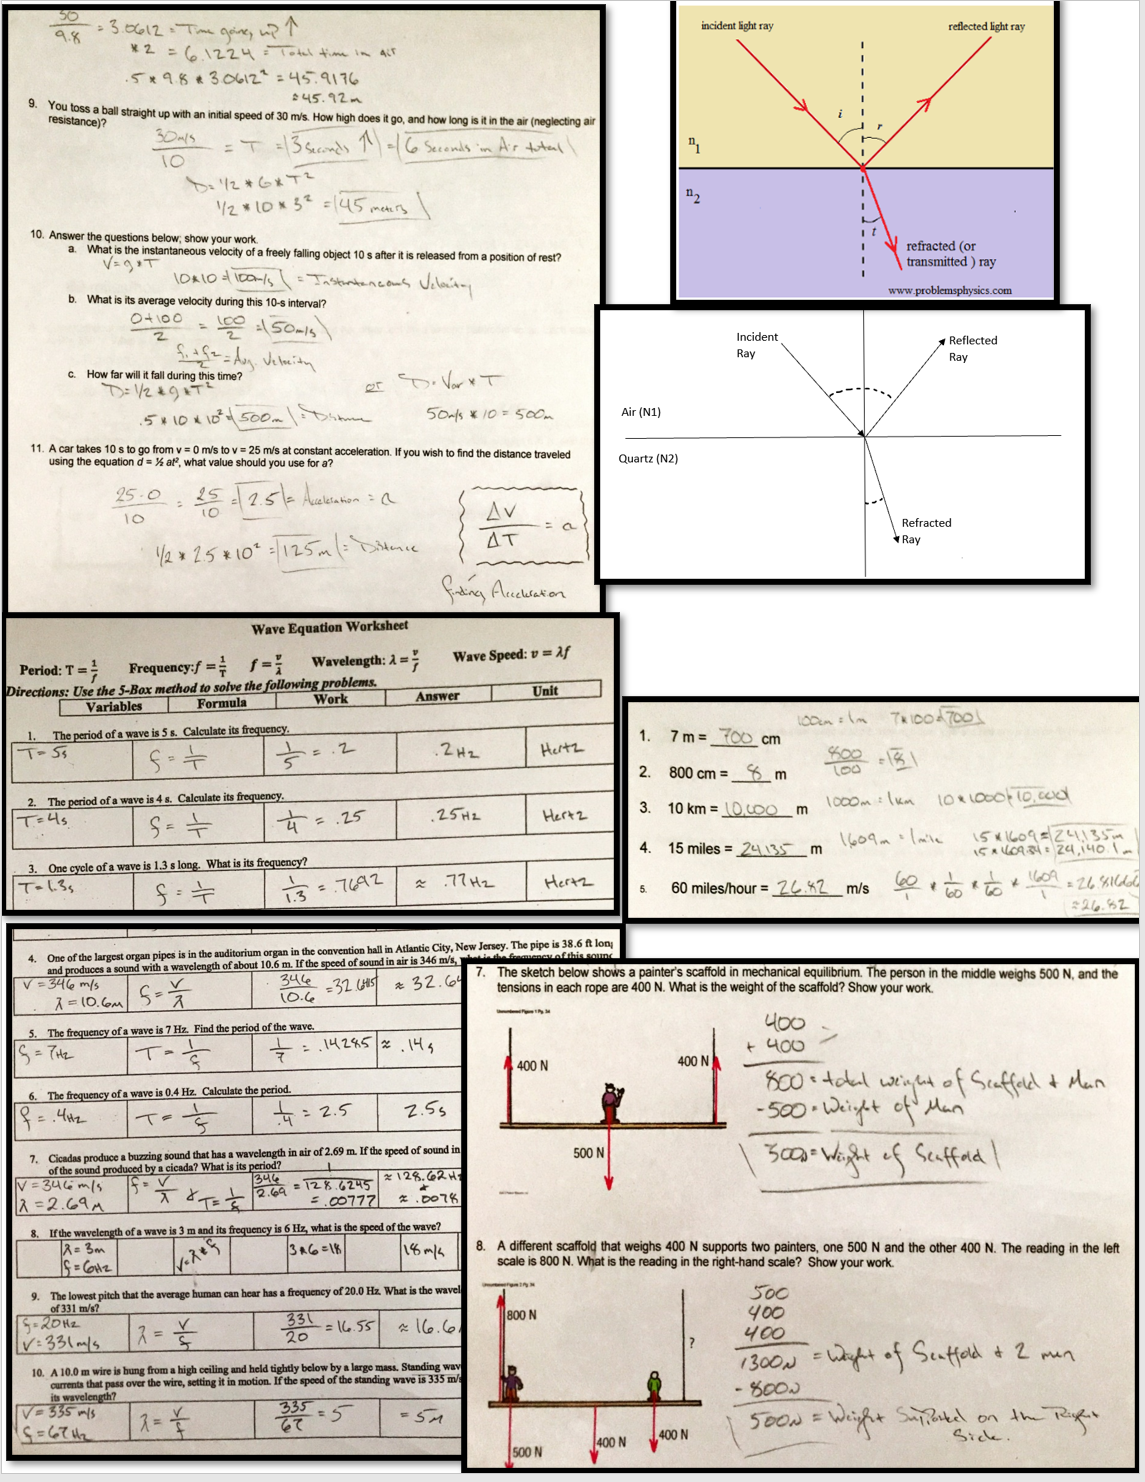 30
9.8 = 3.0612 = Time going up? ↑
* 2 = 6.1224 = Total time in air
.5 * 9.8 * 3.0612² = 45.9176
≈45.92m
9. You toss a ball straight up with an initial speed of 30 m/s. How high does it go, and how long is it in the air (neglecting air
resistance)?
30m/s
10 = T = 3 seconds ↑ = 6 Seconds in Air total
D= 1/2 * G * T²
1/2 * 10 * 3² = 45 meters
10. Answer the questions below; show your work.
a. What is the instantaneous velocity of a freely falling object 10 s after it is released from a position of rest?
V = g * T
10*10 = 100m/s = Instantaneous Velocity
b. What is its average velocity during this 10-s interval?
0+100
2 = 100
2 = 50m/s
= Avg. Velocity
c. How far will it fall during this time?
D=1/2 * g * T² or
.5 * 10 * 10² = 500m = Distance 50m/s * 10 = 500m
11. A car takes 10 s to go from v = 0 m/s to v = 25 m/s at constant acceleration. If you wish to find the distance traveled
using the equation d = ½ at², what value should you use for a?
25-0
10 = 25
10 = 2.5 = Acceleration = a
ΔV
ΔT = a
1/2 * 2.5 * 10² = 125m = Distance
finding Acceleration
incident light ray
reflected light ray
i
r
n1
n2
t
refracted (or
transmitted ) ray
www.problemsphysics.com
Incident
Ray
Reflected
Ray
Air (N1)
Quartz (N2)
Refracted
Ray
Wave Equation Worksheet
Period: T = 1/f Frequency: f = 1/T f = v/λ Wavelength: λ = v/f Wave Speed: v = λf
Directions: Use the 5-Box method to solve the following problems.
Variables Formula Work Answer Unit
1. The period of a wave is 5 s. Calculate its frequency.
T= 5s f = 1/T 1/5 = .2 .2 Hz Hertz
2. The period of a wave is 4 s. Calculate its frequency.
T=4s f = 1/T 1/4 = .25 .25 Hz Hertz
3. One cycle of a wave is 1.3 s long. What is its frequency?
T=1.3s f = 1/T 1/1.3 = .7692 ≈ .77 Hz Hertz
100cm = 1m 7*100=700
1. 7 m = 700 cm
2. 800 cm = 8 m 800/100 = 8
3. 10 km = 10,000 m 1000m = 1km 10*1000=10,000
4. 15 miles = 24,135 m 1609m = 1mile 15*1609=24,135m
15*1609.34=24,140.1m
5. 60 miles/hour = 26.82 m/s 60/1 * 1/60 * 1/60 * 1609/1 = 26.81666
≈26.82
4. One of the largest organ pipes is in the auditorium organ in the convention hall in Atlantic City, New Jersey. The pipe is 38.6 ft long
and produces a sound with a wavelength of about 10.6 m. If the speed of sound in air is 346 m/s, what is the frequency of this sound
V = 346 m/s
λ = 10.6m f = v/λ 346/10.6 ≈ 32.64
5. The frequency of a wave is 7 Hz. Find the period of the wave.
f = 7Hz T = 1/f 1/7 = .14285 ≈ .14s
6. The frequency of a wave is 0.4 Hz. Calculate the period.
f = .4Hz T = 1/f 1/.4 = 2.5 2.5s
7. Cicadas produce a buzzing sound that has a wavelength in air of 2.69 m. If the speed of sound in
of the sound produced by a cicada? What is its period?
V = 346 m/s
λ = 2.69m f = v/λ & T = 1/f 346/2.69 = 128.6245
= .00777 ≈ 128.62Hz
& ≈ .0078
8. If the wavelength of a wave is 3 m and its frequency is 6 Hz, what is the speed of the wave?
λ = 3m
f = 6Hz v = λ * f 3*6=18 18 m/s
9. The lowest pitch that the average human can hear has a frequency of 20.0 Hz. What is the wavel
of 331 m/s?
f = 20Hz
V = 331m/s λ = v/f 331/20 = 16.55 ≈ 16.6
10. A 10.0 m wire is hung from a high ceiling and held tightly below by a large mass. Standing wav
currents that pass over the wire, setting it in motion. If the speed of the standing wave is 335 m/s
its wavelength?
V = 335 m/s
f = 67Hz λ = v/f 335/67 = 5 = 5m
7. The sketch below shows a painter's scaffold in mechanical equilibrium. The person in the middle weighs 500 N, and the
tensions in each rope are 400 N. What is the weight of the scaffold? Show your work.
400 N
400 N
500 N
400
+ 400
800 = total weight of Scaffold + Man
-500 = Weight of Man
300N = Weight of Scaffold
8. A different scaffold that weighs 400 N supports two painters, one 500 N and the other 400 N. The reading in the left
scale is 800 N. What is the reading in the right-hand scale? Show your work.
800 N
?
500 N
400 N
400 N
500
400
400
1300N = Weight of Scaffold + 2 men
-800N
500N = Weight Supported on the Right
Side.